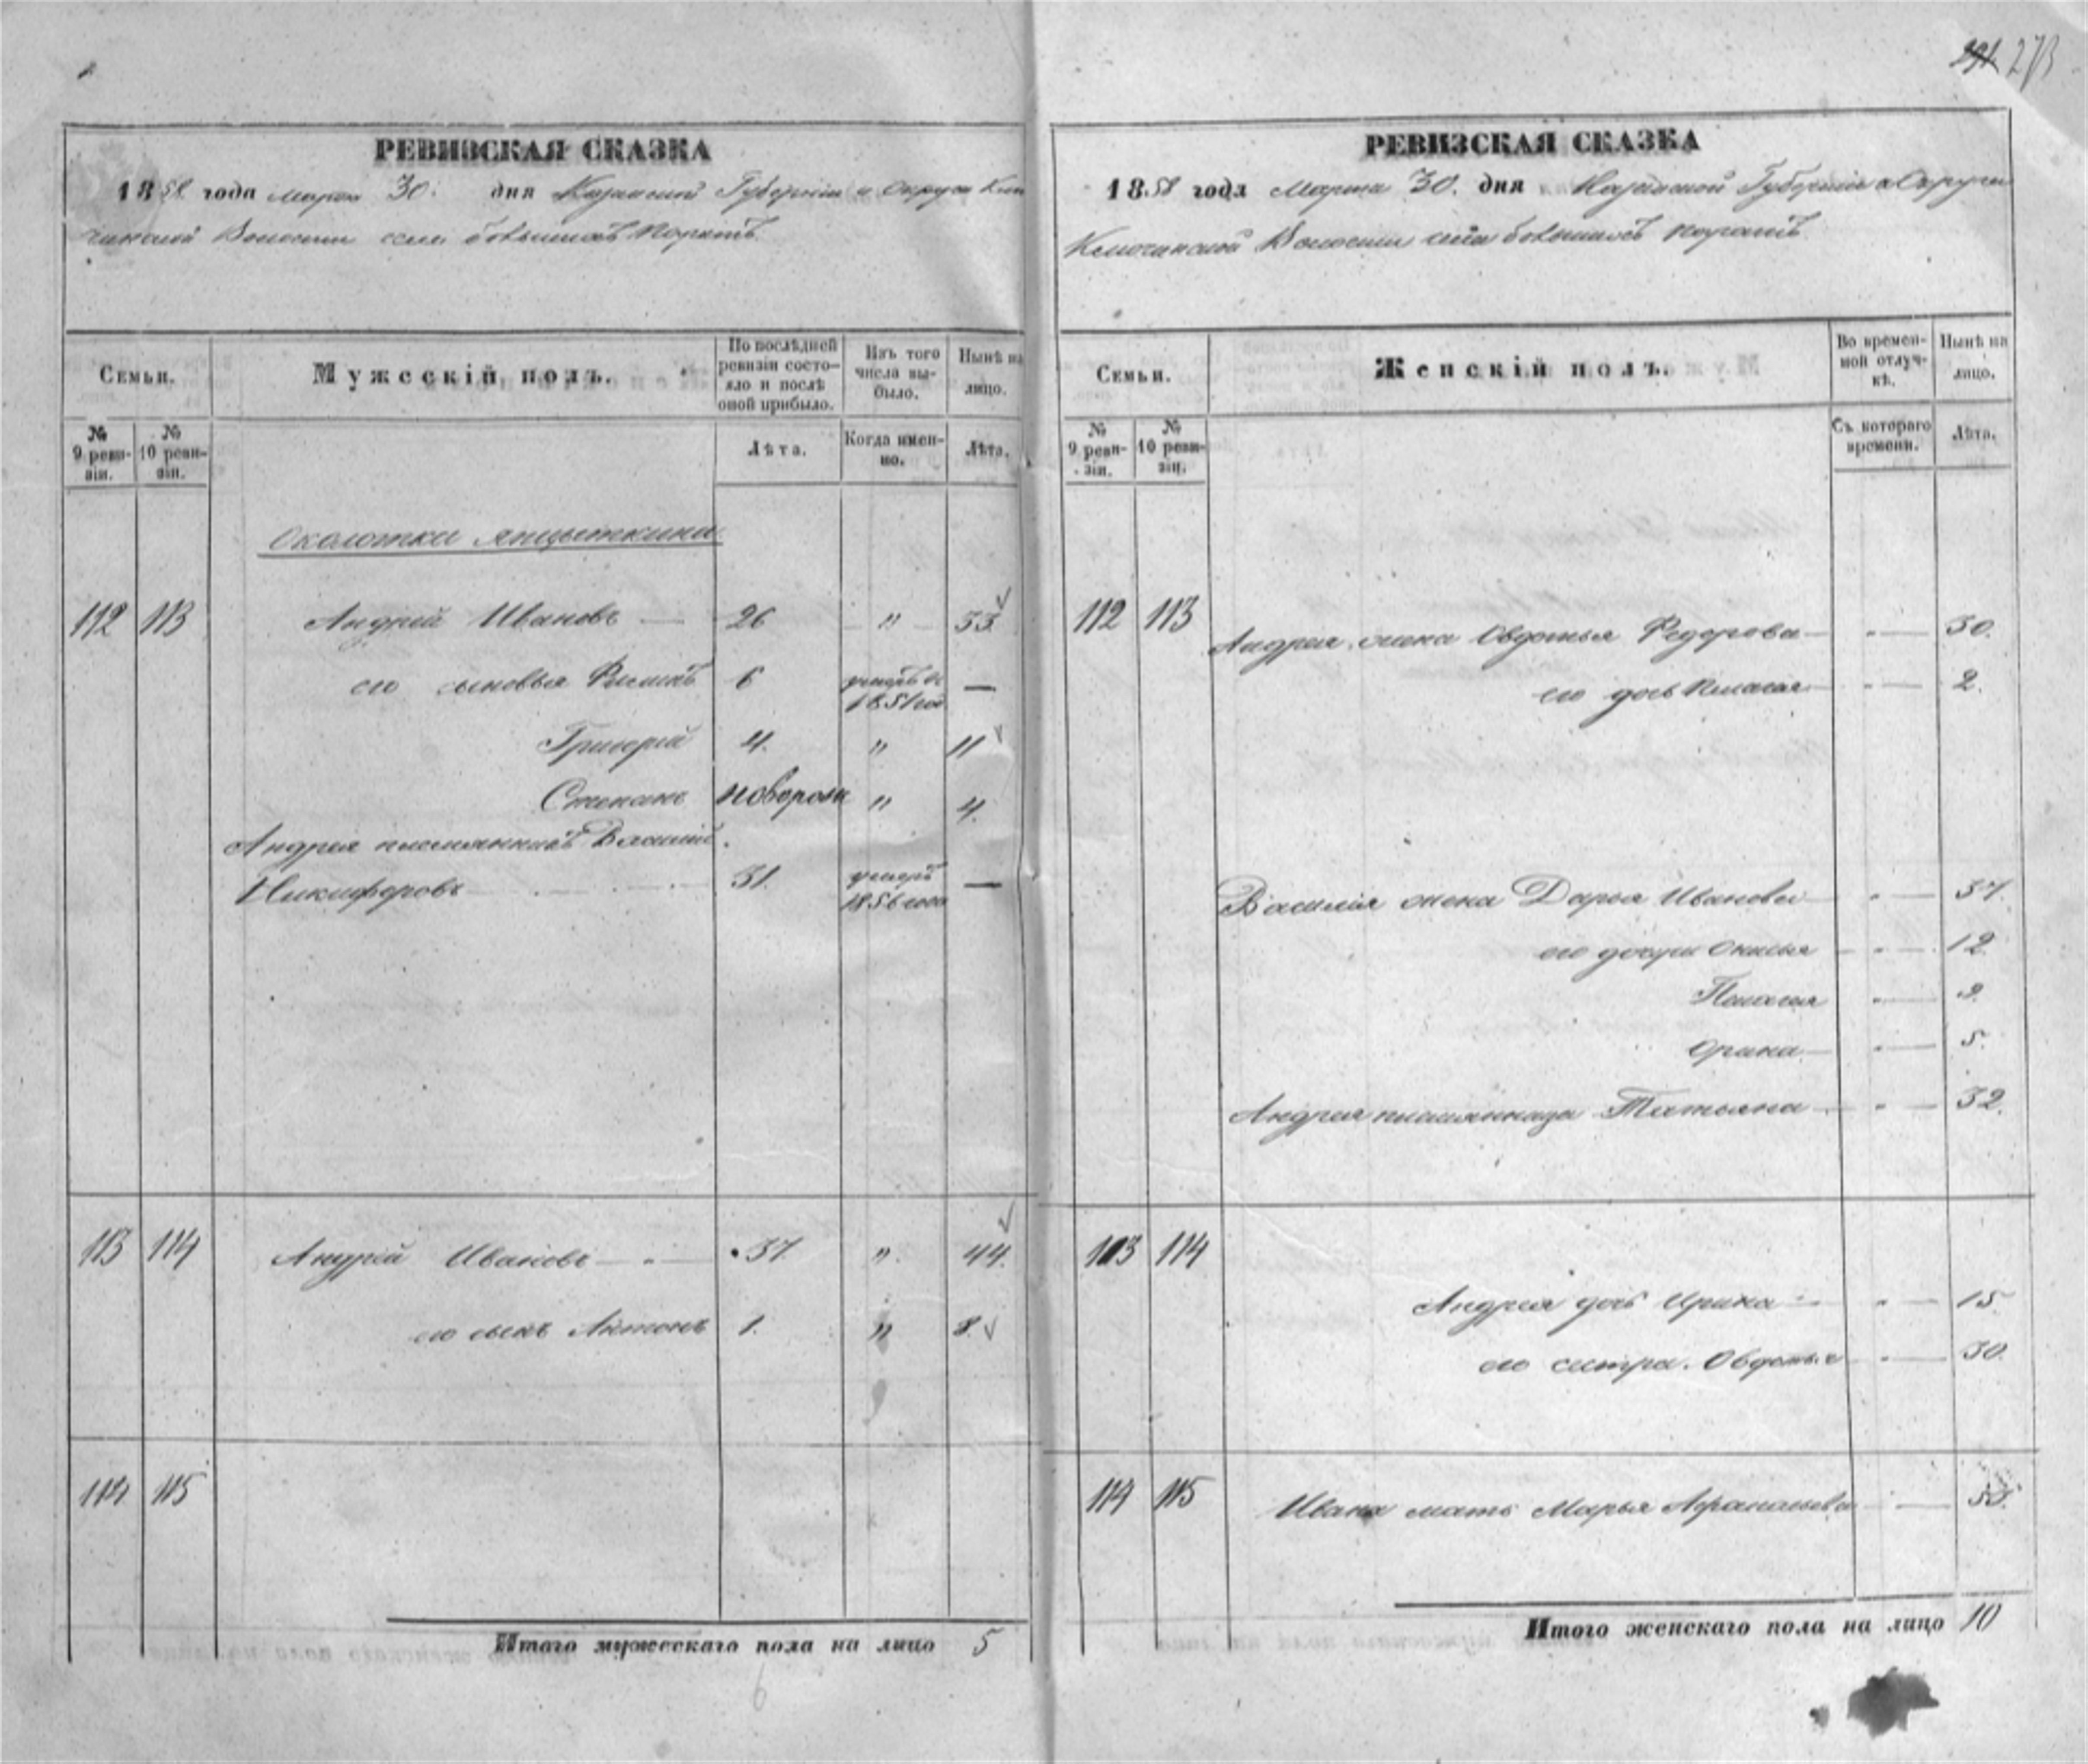 273
РЕВИЗСКАЯ СКАЗКА
1858 года Марта 30. дня Казанской Губерніи и Округа Клю
чинской Волости села
Семьи.
Мужескій полъ.
По послѣдней ревизіи состо-
яло и послѣ
оной прибыло.
Изъ того
числа вы-
было.
Нынѣ на
лицо.
№
9 реви-
зіи.
№
10 реви-
зіи.
Лѣта.
Когда имен-
но.
Лѣта.
Околотки
112 113 Андрей Ивановъ — 26 " 33
его сыновья 6 умеръ въ —
1851 год
Григорій 4. " 11
Степанъ новорож " 4.
Андрея племянникъ Василій
Никифоровъ 31. умеръ —
1856 года
113 114 Андрей Ивановъ — 37 " 44.
его сынъ Антонъ 1. " 8.
114 115
Итого мужескаго пола на лицо 5
6
РЕВИЗСКАЯ СКАЗКА
1858 года Марта 30. дня Казанской Губерніи и Округи
Ключинской Волости села
Семьи.
Женскій полъ.
Во времен-
ной отлуч-
кѣ.
Нынѣ на
лицо.
№
9 реви-
зіи.
№
10 реви-
зіи.
Съ котораго
времени.
Лѣта.
112 113 Андрея жена Овдотья Федорова — " — 30.
его дочь — " — 2.
Василія жена Дарья Иванова — " — 37.
его дочери — " — 12
Пелагія " — 9
Орина — " — 5.
Андрея племянница Татьяна — " — 32.
113 114
Андрея дочь Ирина — " — 15
его сестра Овдотья — " — 30.
114 115 Ивана мать Марья Афанасьева —
Итого женскаго пола на лицо 10